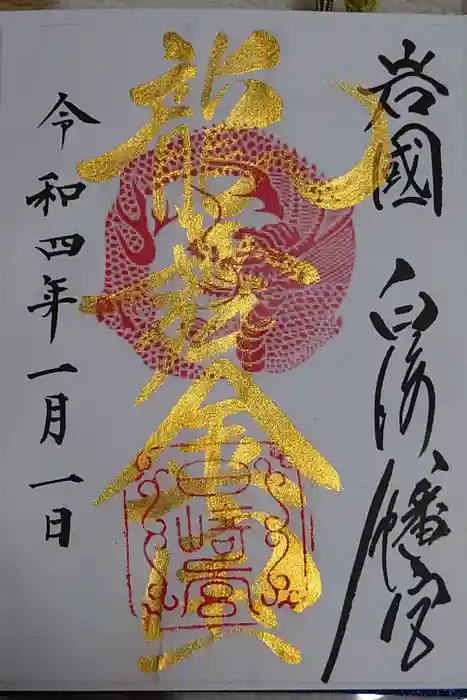 岩國 白崎八幡宮
龍
金
白崎宮
令和四年一月一日